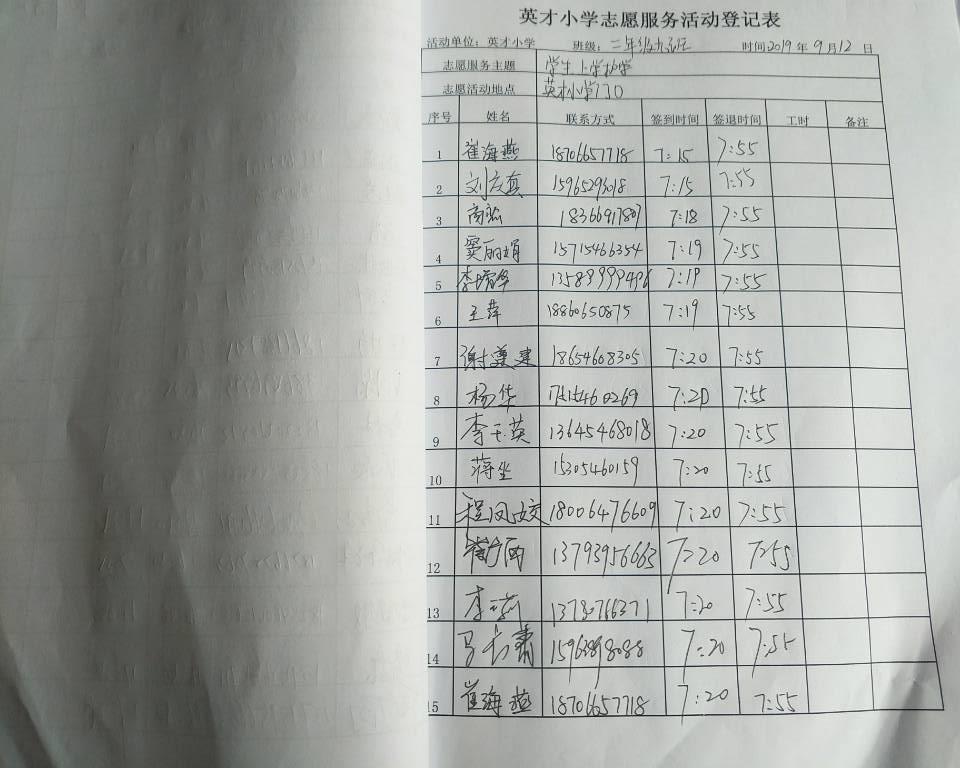 英才小学志愿服务活动登记表
活动单位：英才小学 班级：二年级九班 时间2019年9月12日
志愿服务主题 学生上学护学
志愿活动地点 英才小学门口
序号 姓名 联系方式 签到时间 签退时间 工时 备注
1 崔海燕 18706657718 7:15 7:55
2 15965293018 7:15 7:55
3 18366917807 7:18 7:55
4 窦丽娟 15715466354 7:19 7:55
5 13589999496 7:19 7:55
6 王萍 18860650875 7:19 7:55
7 谢尊建 18654608305 7:20 7:55
8 杨华 7:20 7:55
9 李玉英 13645468018 7:20 7:55
10 蒋坐 15305460159 7:20 7:55
11 程凤姣 18006476609 7:20 7:55
12 13793956663 7:20 7:55
13 13780766371 7:20 7:55
14 7:20 7:55
15 崔海燕 18706657718 7:20 7:55